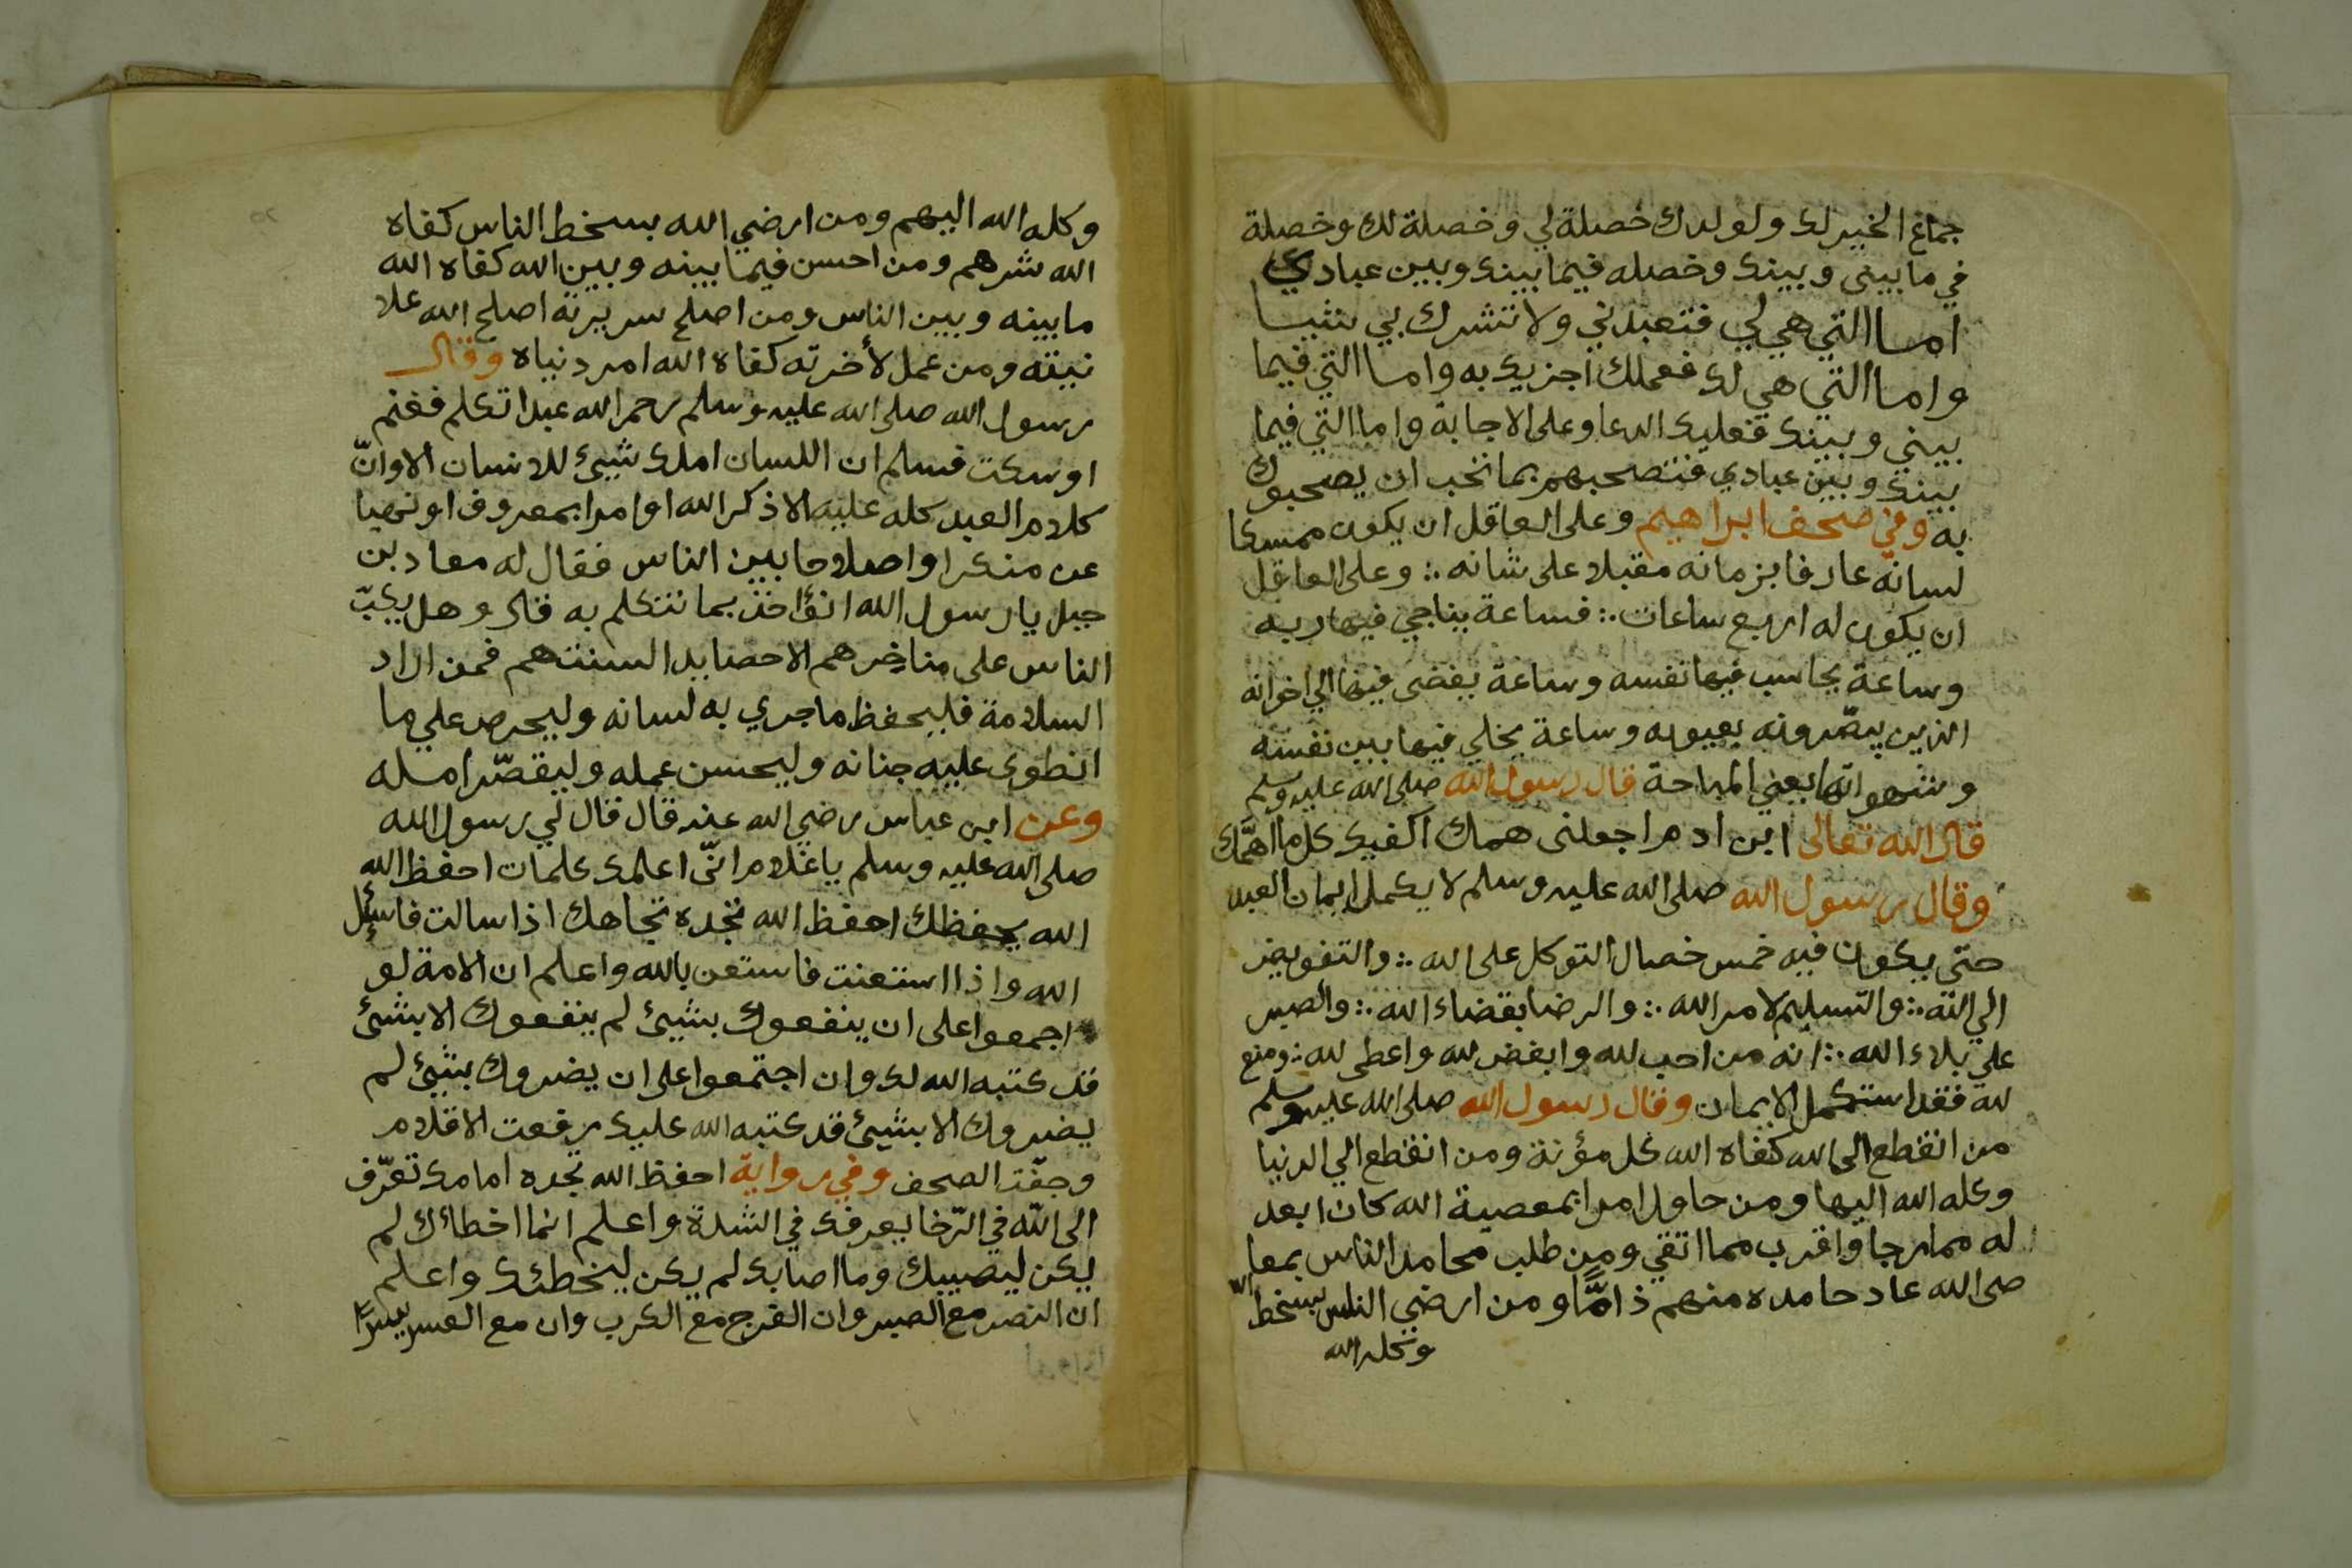 جماع الخير لك ولولدك خصلة لي وخصلة لك وخصلة
في ما بيني وبينك وخصله فيما بينك وبين عبادي
اما التي هي لي فتعبدني ولا تشرك بي شيا
واما التي هي لك فعملك اجزيك به واما التي فيما
بيني وبينك فعليك الدعا وعلى الاجابة واما التي فيما
بينك وبين عبادي فتصحبهم بما تحب ان يصحبوك
به وفي صحف ابراهيم وعلى العاقل ان يكون ممسكا
لسانه عارفا بزمانه مقبلا على شانه ∴ وعلى العاقل
ان يكون له اربع ساعات ∴ فساعة يناجي فيها ربه
وساعة يحاسب فيها نفسه وساعة يفضى فيها الي اخوانه
الذين يبصّرونه بعيوبه وساعة يخلي فيها بين نفسه
وشهواتها يعني المباحة قال رسول الله صلى الله عليه وسلم
قال الله تعالى ابن ادم اجعلنى همك اكفيك كل ما اهمّك
وقال رسول الله صلى الله عليه وسلم لا يكمل ايمان العبد
حتى يكون فيه خمس خصال التوكل على الله ∴ والتفويض
الي الله ∴ والتسليم لامر الله ∴ والرضا بقضاء الله ∴ والصبر
على بلاء الله ∴ انه من احب لله وابغض لله واعطى لله ∴ ومنع
لله فقد استكمل الايمان وقال رسول الله صلى الله عليه وسلم
من انقطع الى الله كفاه الله كل مؤنة ومن انقطع الي الدنيا
وكله الله اليها ومن حاول امرا بمعصية الله كان ابعد
له مما رجا واقرب مما اتقي ومن طلب محامد الناس بمعا
صى الله عاد حامده منهم ذامًّا ومن ارضي الناس بسخط الله
وكله الله
وكله الله اليهم ومن ارضي الله بسخط الناس كفاه
الله شرهم ومن احسن فيما بينه وبين الله كفاه الله
ما بينه وبين الناس ومن اصلح سريرته اصلح الله علا
نيته ومن عمل لأخرته كفاه الله امر دنياه وقال
رسول الله صلى الله عليه وسلم رحم الله عبدا تكلم فغنم
او سكت فسلم ان اللسان املك شيئ للانسان الا وانّ
كلام العبد كله عليه الا ذكر الله او امرا بمعروف او نهيا
عن منكر او اصلاحا بين الناس فقال له معاد بن
جبل يا رسول الله انؤاخذ بما نتكلم به قال وهل يكبّ
الناس على مناخرهم الا حصايد السنتهم فمن اراد
السلامة فليحفظ ما جري به لسانه وليحرص علي ما
انطوى عليه جنانه وليحسن عمله وليقصّر امله
وعن ابن عباس رضي الله عنه قال قال لي رسول الله
صلى الله عليه وسلم يا غلام انّى اعلمك كلمات احفظ الله
الله يحفظك احفظ الله تجده تجاهك اذا سالت فاسئل
الله واذا استعنت فاستعن بالله واعلم ان الامة لو
اجمعوا على ان ينفعوك بشيئ لم ينفعوك الا بشئ
قد كتبه الله لك وان اجتمعوا على ان يضروك بشيئ لم
يضروك الا بشيئ قد كتبه الله عليك رفعت الاقلام
وجفّت الصحف وفي رواية احفظ الله تجده امامك تعرّف
الى الله في الرّخا يعرفك في الشدة واعلم انما اخطائك لم
يكن ليصيبك وما اصابك لم يكن ليخطئك واعلم
ان النصر مع الصبر وان الفرج مع الكرب وان مع العسر يسرًا